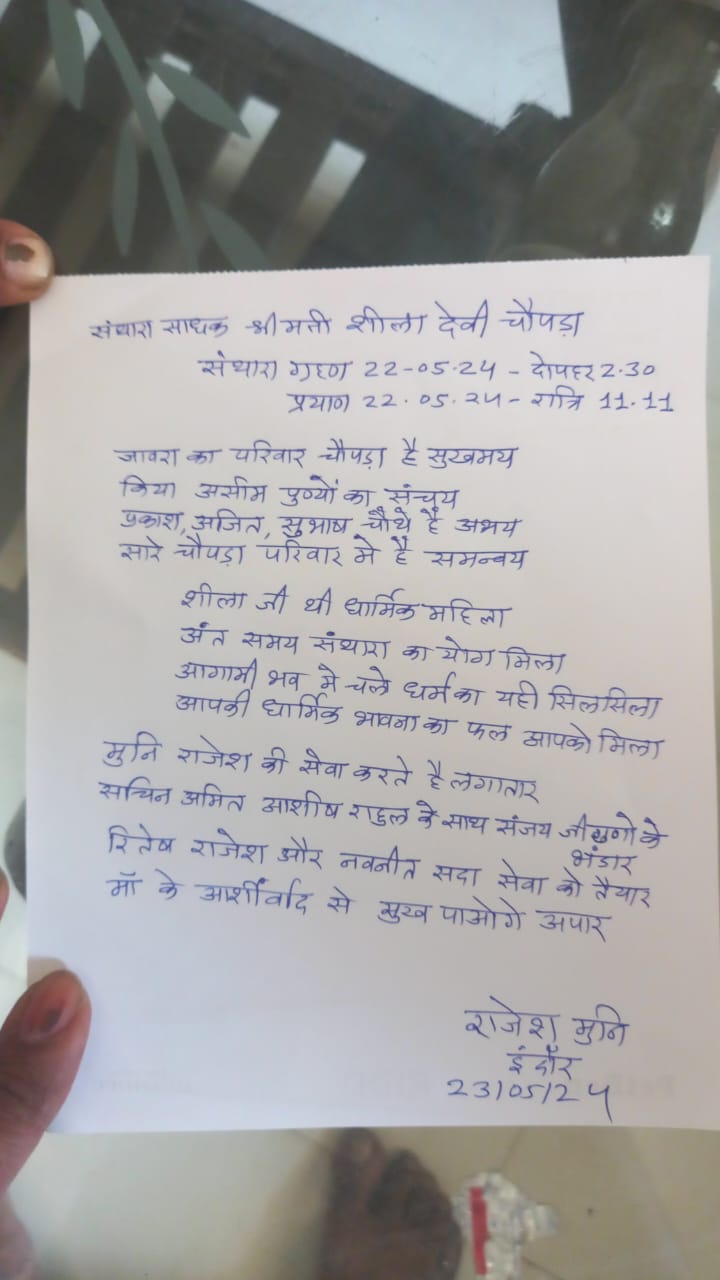 संथारा साधक श्रीमती शीला देवी चौपड़ा
संथारा ग्रहण 22-05.24 - दोपहर 2.30
प्रयाण 22.05.24 - रात्रि 11.11
जावरा का परिवार चौपड़ा है सुखमय
किया असीम पुण्यों का संचय
प्रकाश, अजित, सुभाष चौथे है अभय
सारे चौपड़ा परिवार मे है समन्वय
शीला जी थी धार्मिक महिला
अंत समय संथारा का योग मिला
आगामी भव मे चले धर्म का यही सिलसिला
आपकी धार्मिक भावना का फल आपको मिला
मुनि राजेश की सेवा करते है लगातार
सचिन अमित आशीष राहुल के साथ संजय जी गुणो के
भंडार
रितेष राजेश और नवनीत सदा सेवा को तैयार
माँ के आर्शीर्वाद से सुख पाओगे अपार
राजेश मुनि
इंदौर
23/05/24